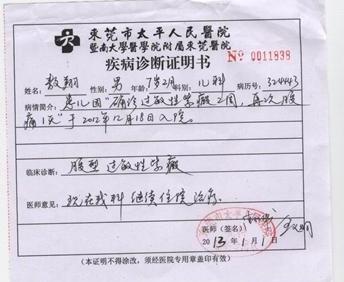 東莞市太平人民醫院
暨南大學醫學院附属東莞醫院
疾病诊断证明书
№ 0011838
姓名: 敖翔 性别: 男 年龄: 7岁2月 科别: 儿科 病历号: 324443
病情简介: 患儿因"确诊过敏性紫癜2周,再次腹
痛1天"于2012年12月18日入院。
临床诊断: 腹型过敏性紫癜
医师意见: 现在我科继续住院治疗。
医师(签名)
2013年1月1日
(本证明不得涂改,须经医院专用章盖印有效)